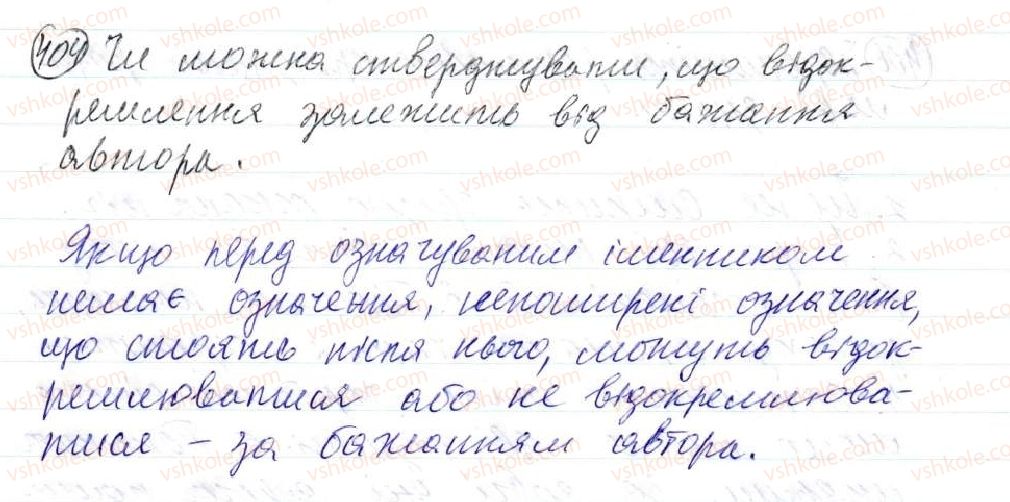 404 Чи можна стверджувати, що відок-
ремлення залежить від бажання
автора.
Якщо перед означуваним іменником
немає означення, непоширені означення,
що стоять після нього, можуть відок-
ремлюватися або не відокремлюва-
тися – за бажанням автора.